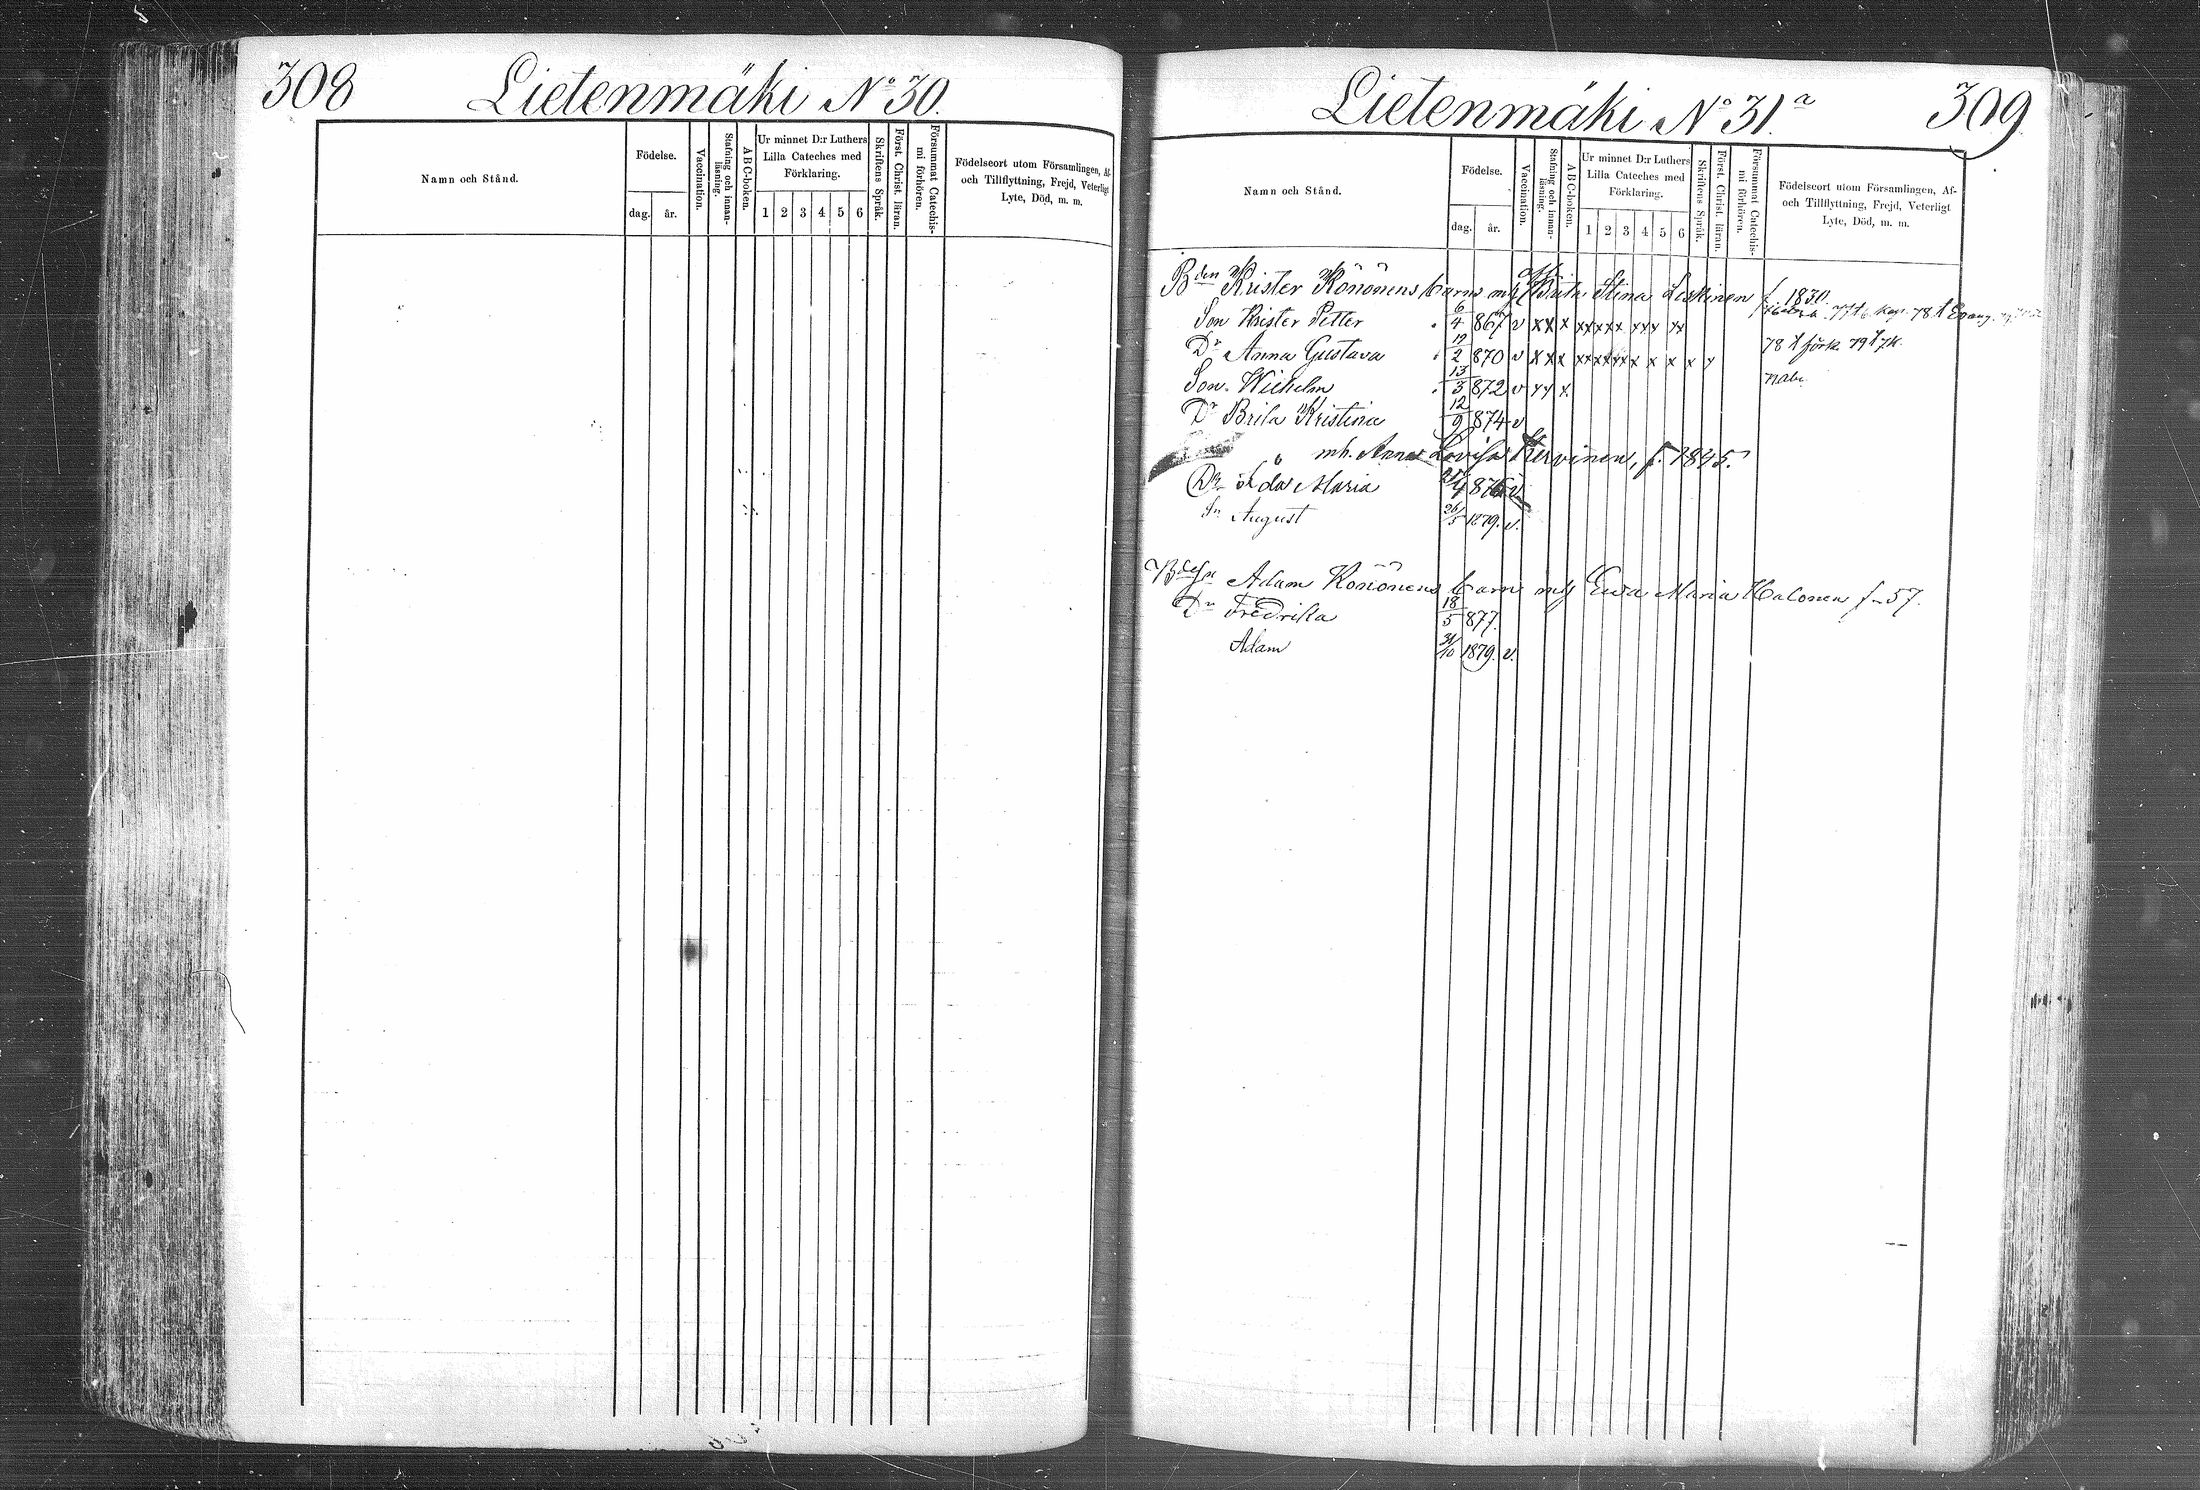 308
Lietenmäki No 30.
Namn och Stånd.
Födelse.
dag. år.
Vaccination.
Stafning och innan-
läsning.
ABC-boken.
Ur minnet D:r Luthers
Lilla Cateches med
Förklaring.
1 2 3 4 5 6
Skriftens Språk.
Först. Christ. läran.
Försummat Catechis-
mi förhören.
Födelseort utom Församlingen, Af-
och Tillflyttning, Frejd, Veterligt
Lyte, Död, m. m.
Lietenmäki No 31.a
309
Namn och Stånd.
Födelse.
dag. år.
Vaccination.
Stafning och innan-
läsning.
ABC-boken.
Ur minnet D:r Luthers
Lilla Cateches med
Förklaring.
1 2 3 4 5 6
Skriftens Språk.
Först. Christ. läran.
Försummat Catechis-
mi förhören.
Födelseort utom Församlingen, Af-
och Tillflyttning, Frejd, Veterligt
Lyte, Död, m. m.
Bden Krister Könönens barn m/ Brita Stina Leskinen f. 1830.
Son Krister Petter 6/4 867 v x x x x x x x x x x x x x
Dr Anna Gustava 12/2 870 v x x x x x x x x x x x x x x 78
Son Wilhelm 13/3 872 v x x x
Dr Brita Kristina 12/9 874 v
mh. Anna Lovisa Kervinen, f. 1845.
Dr Ida Maria 876 v
Sn August 26/5 1879. v.
Adam Könönens barn m/ Ewa Maria Halonen f. 57.
Dr Fredrika 18/5 877.
Adam 31/10 1879. v.